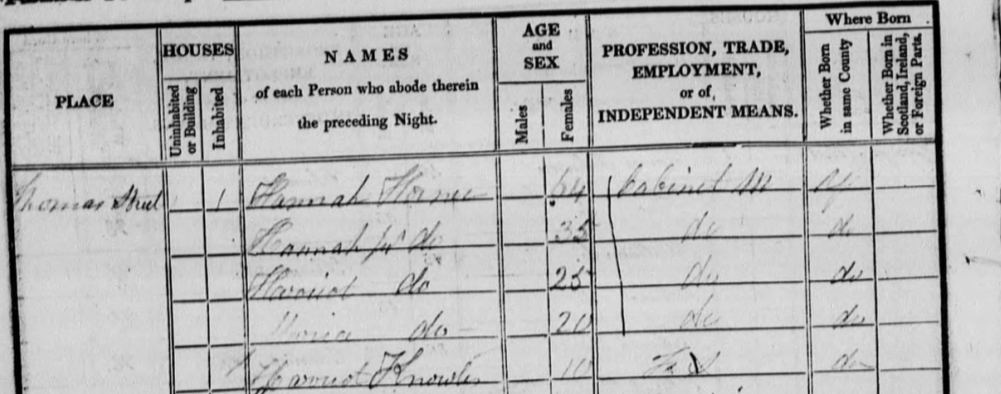 PLACE HOUSES Uninhabited or Building Inhabited NAMES of each Person who abode therein the preceding Night. AGE and SEX Males Females PROFESSION, TRADE, EMPLOYMENT, or of INDEPENDENT MEANS. Where Born Whether Born in same County Whether Born in Scotland, Ireland, or Foreign Parts.
Thomas Street 1 Hannah 64 Cabinet M
Hannah do 35 do do
Harriot do 25 do do
do 20 do do
Harriot Knowles 10 F S do